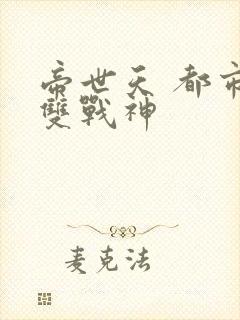 帝世天 都市
雙戰神
麦克法